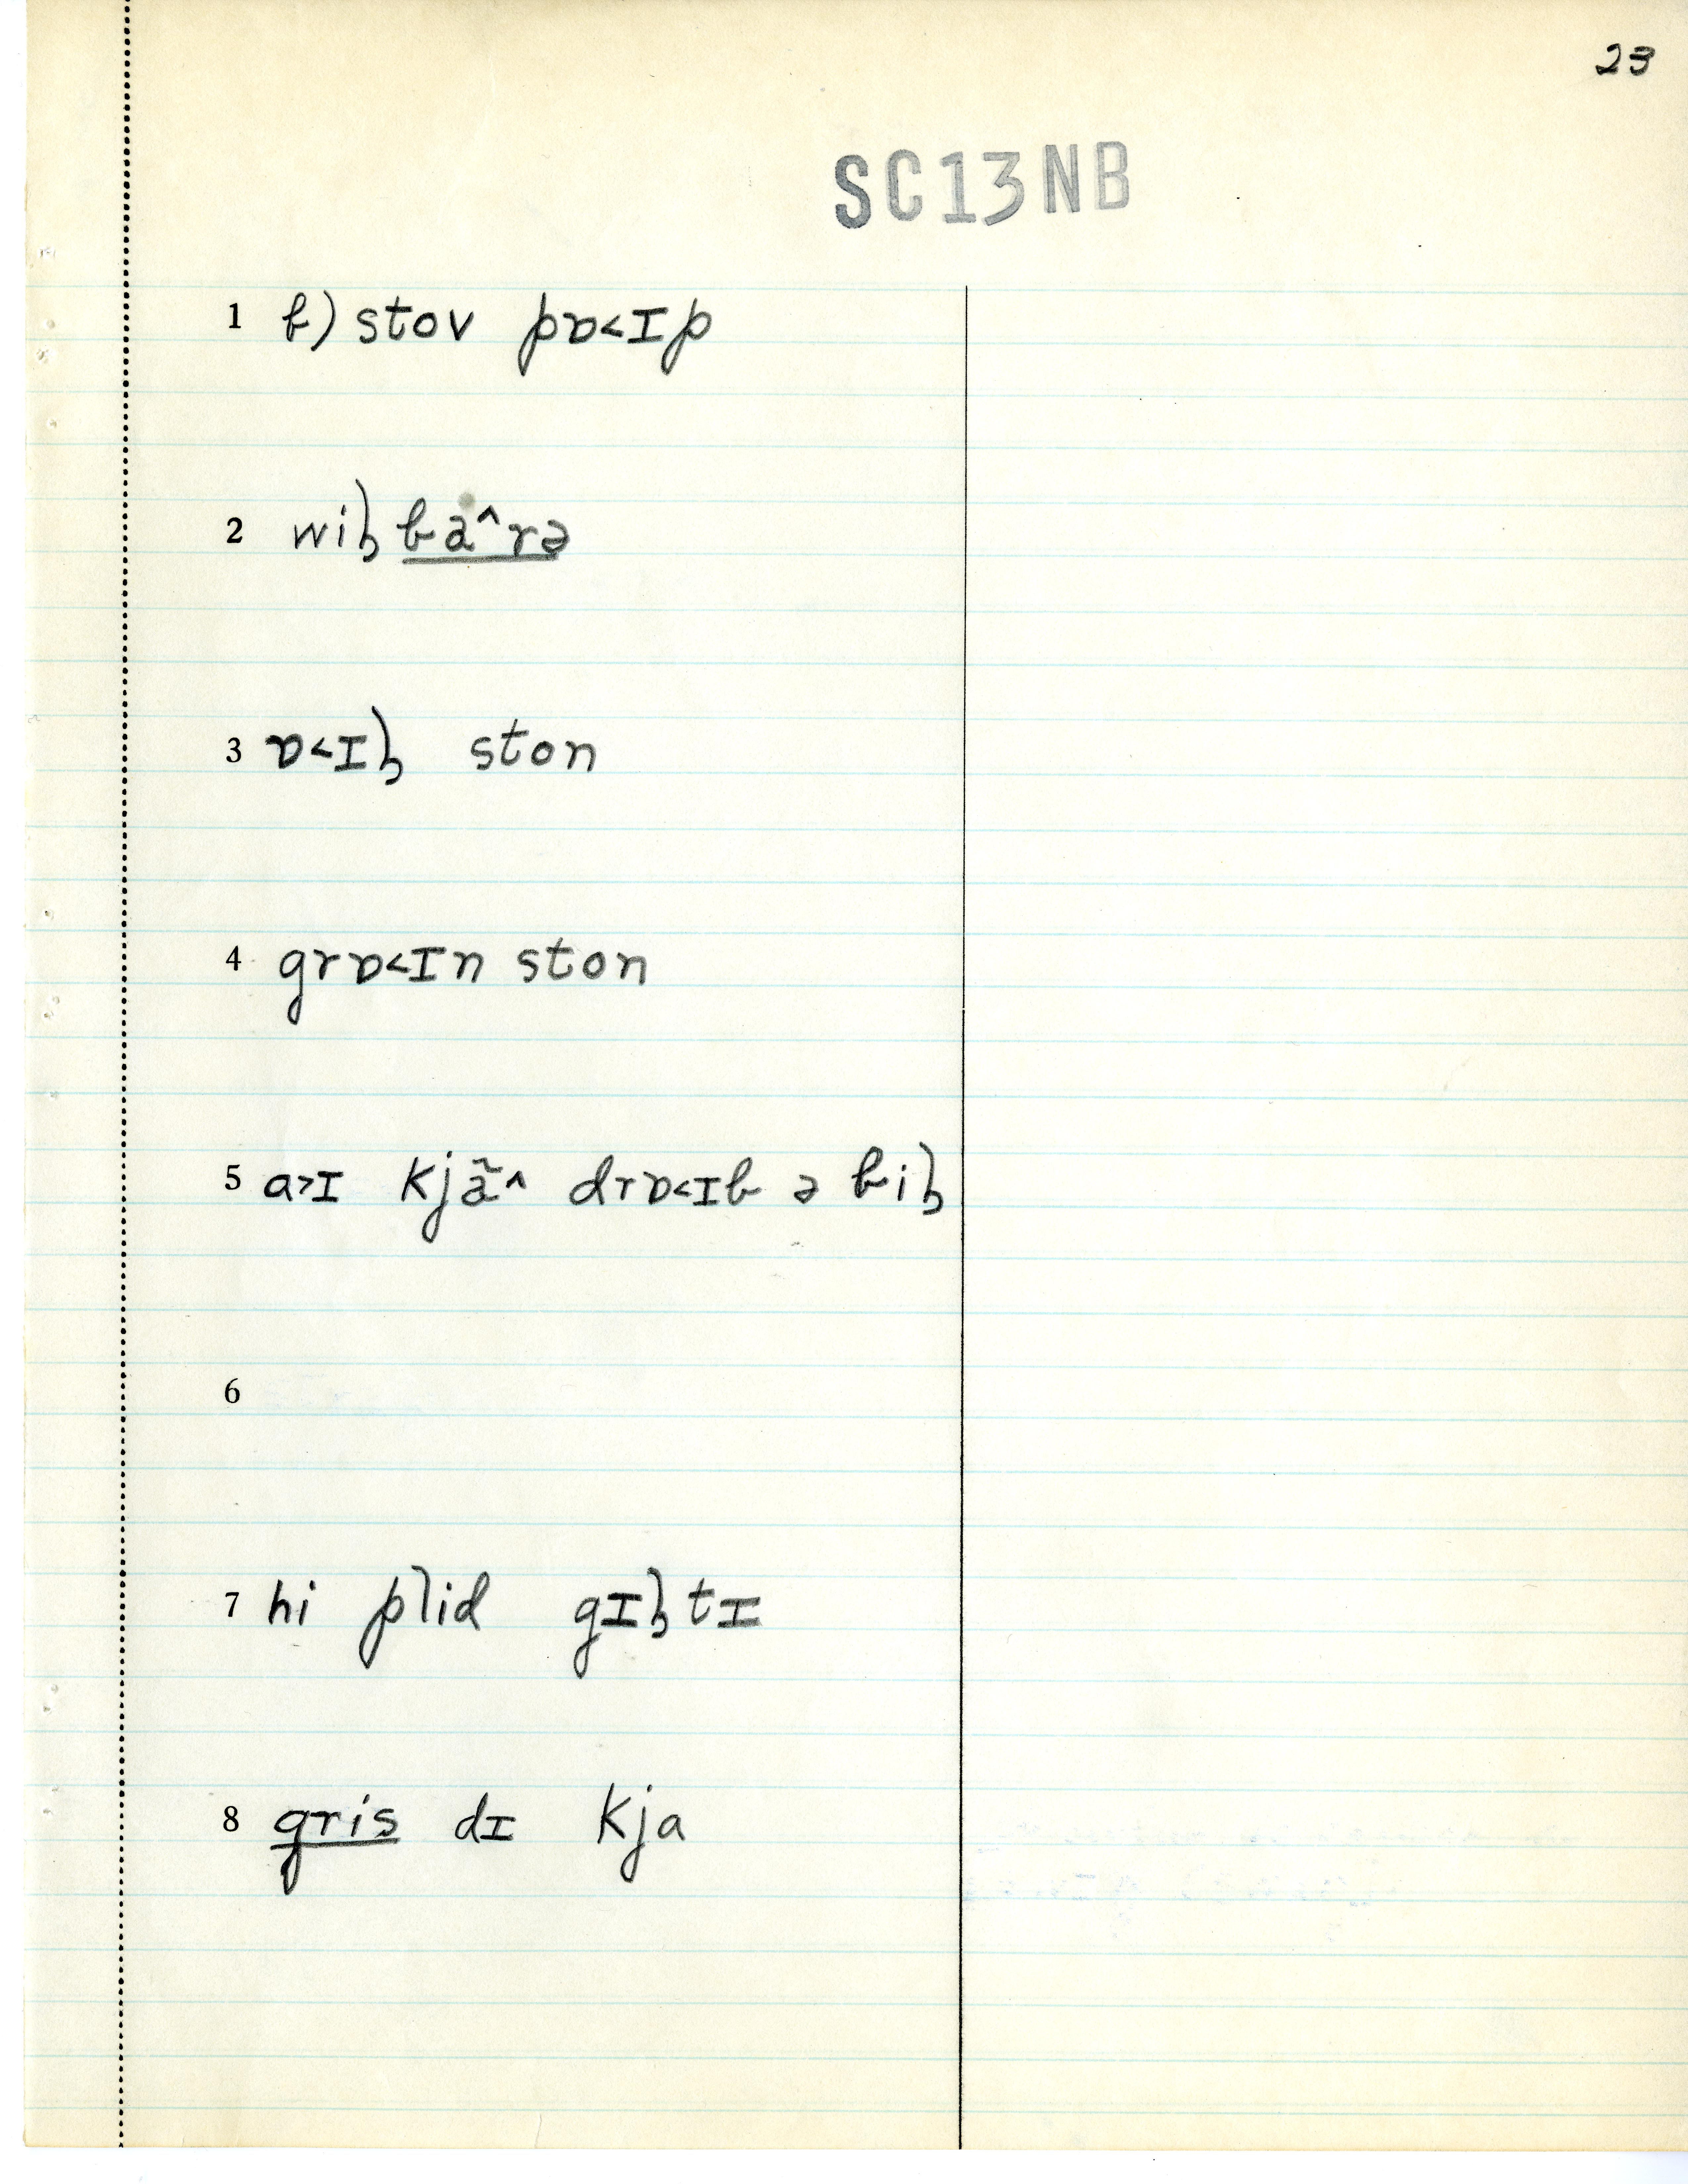 23
SC13NB
1 b) stov pɒ˂ɪp
2 wiɮ ba˄rə
3 ɒ˂ɪɮ ston
4 grɒ˂ɪn ston
5 a˃ɪ kjã˄ drɒ˂ɪb ə biɮ
6
7 hi plid gɪɮtɪ
8 gris dɪ kja